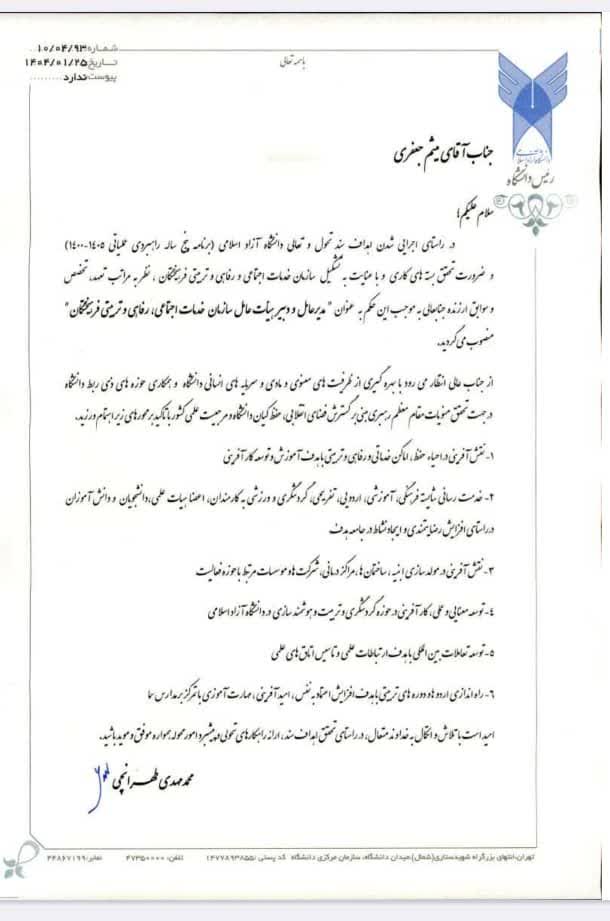 شماره: ۱۰/۰۴/۹۳
تاریخ: ۱۴۰۴/۰۱/۲۵
پیوست: ندارد
باسمه تعالی
رئیس دانشگاه
جناب آقای میثم جعفری
سلام علیکم؛
در راستای اجرایی شدن اهداف سند تحول و تعالی دانشگاه آزاد اسلامی (برنامه پنج ساله راهبردی عملیاتی ۱۴۰۵-۱۴۰۰)
و ضرورت تحقق بسته های کاری و با عنایت به تشکیل سازمان خدمات اجتماعی و رفاهی و تربیتی فرهیختگان ، نظر به مراتب تعهد، تخصص
و سوابق ارزنده جنابعالی به موجب این حکم به عنوان " مدیرعامل و دبیر هیأت عامل سازمان خدمات اجتماعی، رفاهی و تربیتی فرهیختگان "
منصوب می گردید.
از جناب عالی انتظار می رود با بهره گیری از ظرفیت های معنوی و مادی و سرمایه های انسانی دانشگاه و همکاری حوزه های ذی ربط دانشگاه
در جهت تحقق منویات مقام معظم رهبری مبنی بر گسترش فضای انقلابی، حفظ کیان دانشگاه و مرجعیت علمی کشور با تاکید بر محورهای زیر اهتمام ورزید.
۱- نقش آفرینی در احیاء، حفظ، اماکن خدماتی و رفاهی و تربیتی با هدف آموزش و توسعه کارآفرینی
۲- خدمت رسانی شایسته فرهنگی، آموزشی، اردویی، تفریحی، گردشگری و ورزشی به کارمندان، اعضا هیات علمی، دانشجویان و دانش آموزان
در راستای افزایش رضایتمندی و ایجاد نشاط در جامعه هدف
۳- نقش آفرینی در مولدسازی ابنیه، ساختمان ها، مراکز درمانی، شرکت ها و موسسات مرتبط با حوزه فعالیت
۴- توسعه معنایی و علی، کارآفرینی در حوزه گردشگری و تربیت و هوشمند سازی در دانشگاه آزاد اسلامی
۵- توسعه تعاملات بین المللی با هدف ارتباطات علمی و تاسیس اتاق های علمی
۶- راه اندازی اردوها و دوره های تربیتی با هدف افزایش اعتماد به نفس، امیدآفرینی، مهارت آموزی با تمرکز بر مدارس سما
امید است با تلاش و اتکال به خداوند متعال، در راستای تحقق اهداف سند، ارائه راهکارهای تحولی و پیشبرد امور محوله همواره موفق و موید باشید.
محمد مهدی طهرانچی
تهران، انتهای بزرگراه شهید ستاری (شمال)، میدان دانشگاه، سازمان مرکزی دانشگاه کد پستی: ۱۴۷۷۸۹۳۸۵۵ تلفن: ۴۷۳۵۰۰۰۰ نمابر: ۴۴۸۶۷۱۹۹